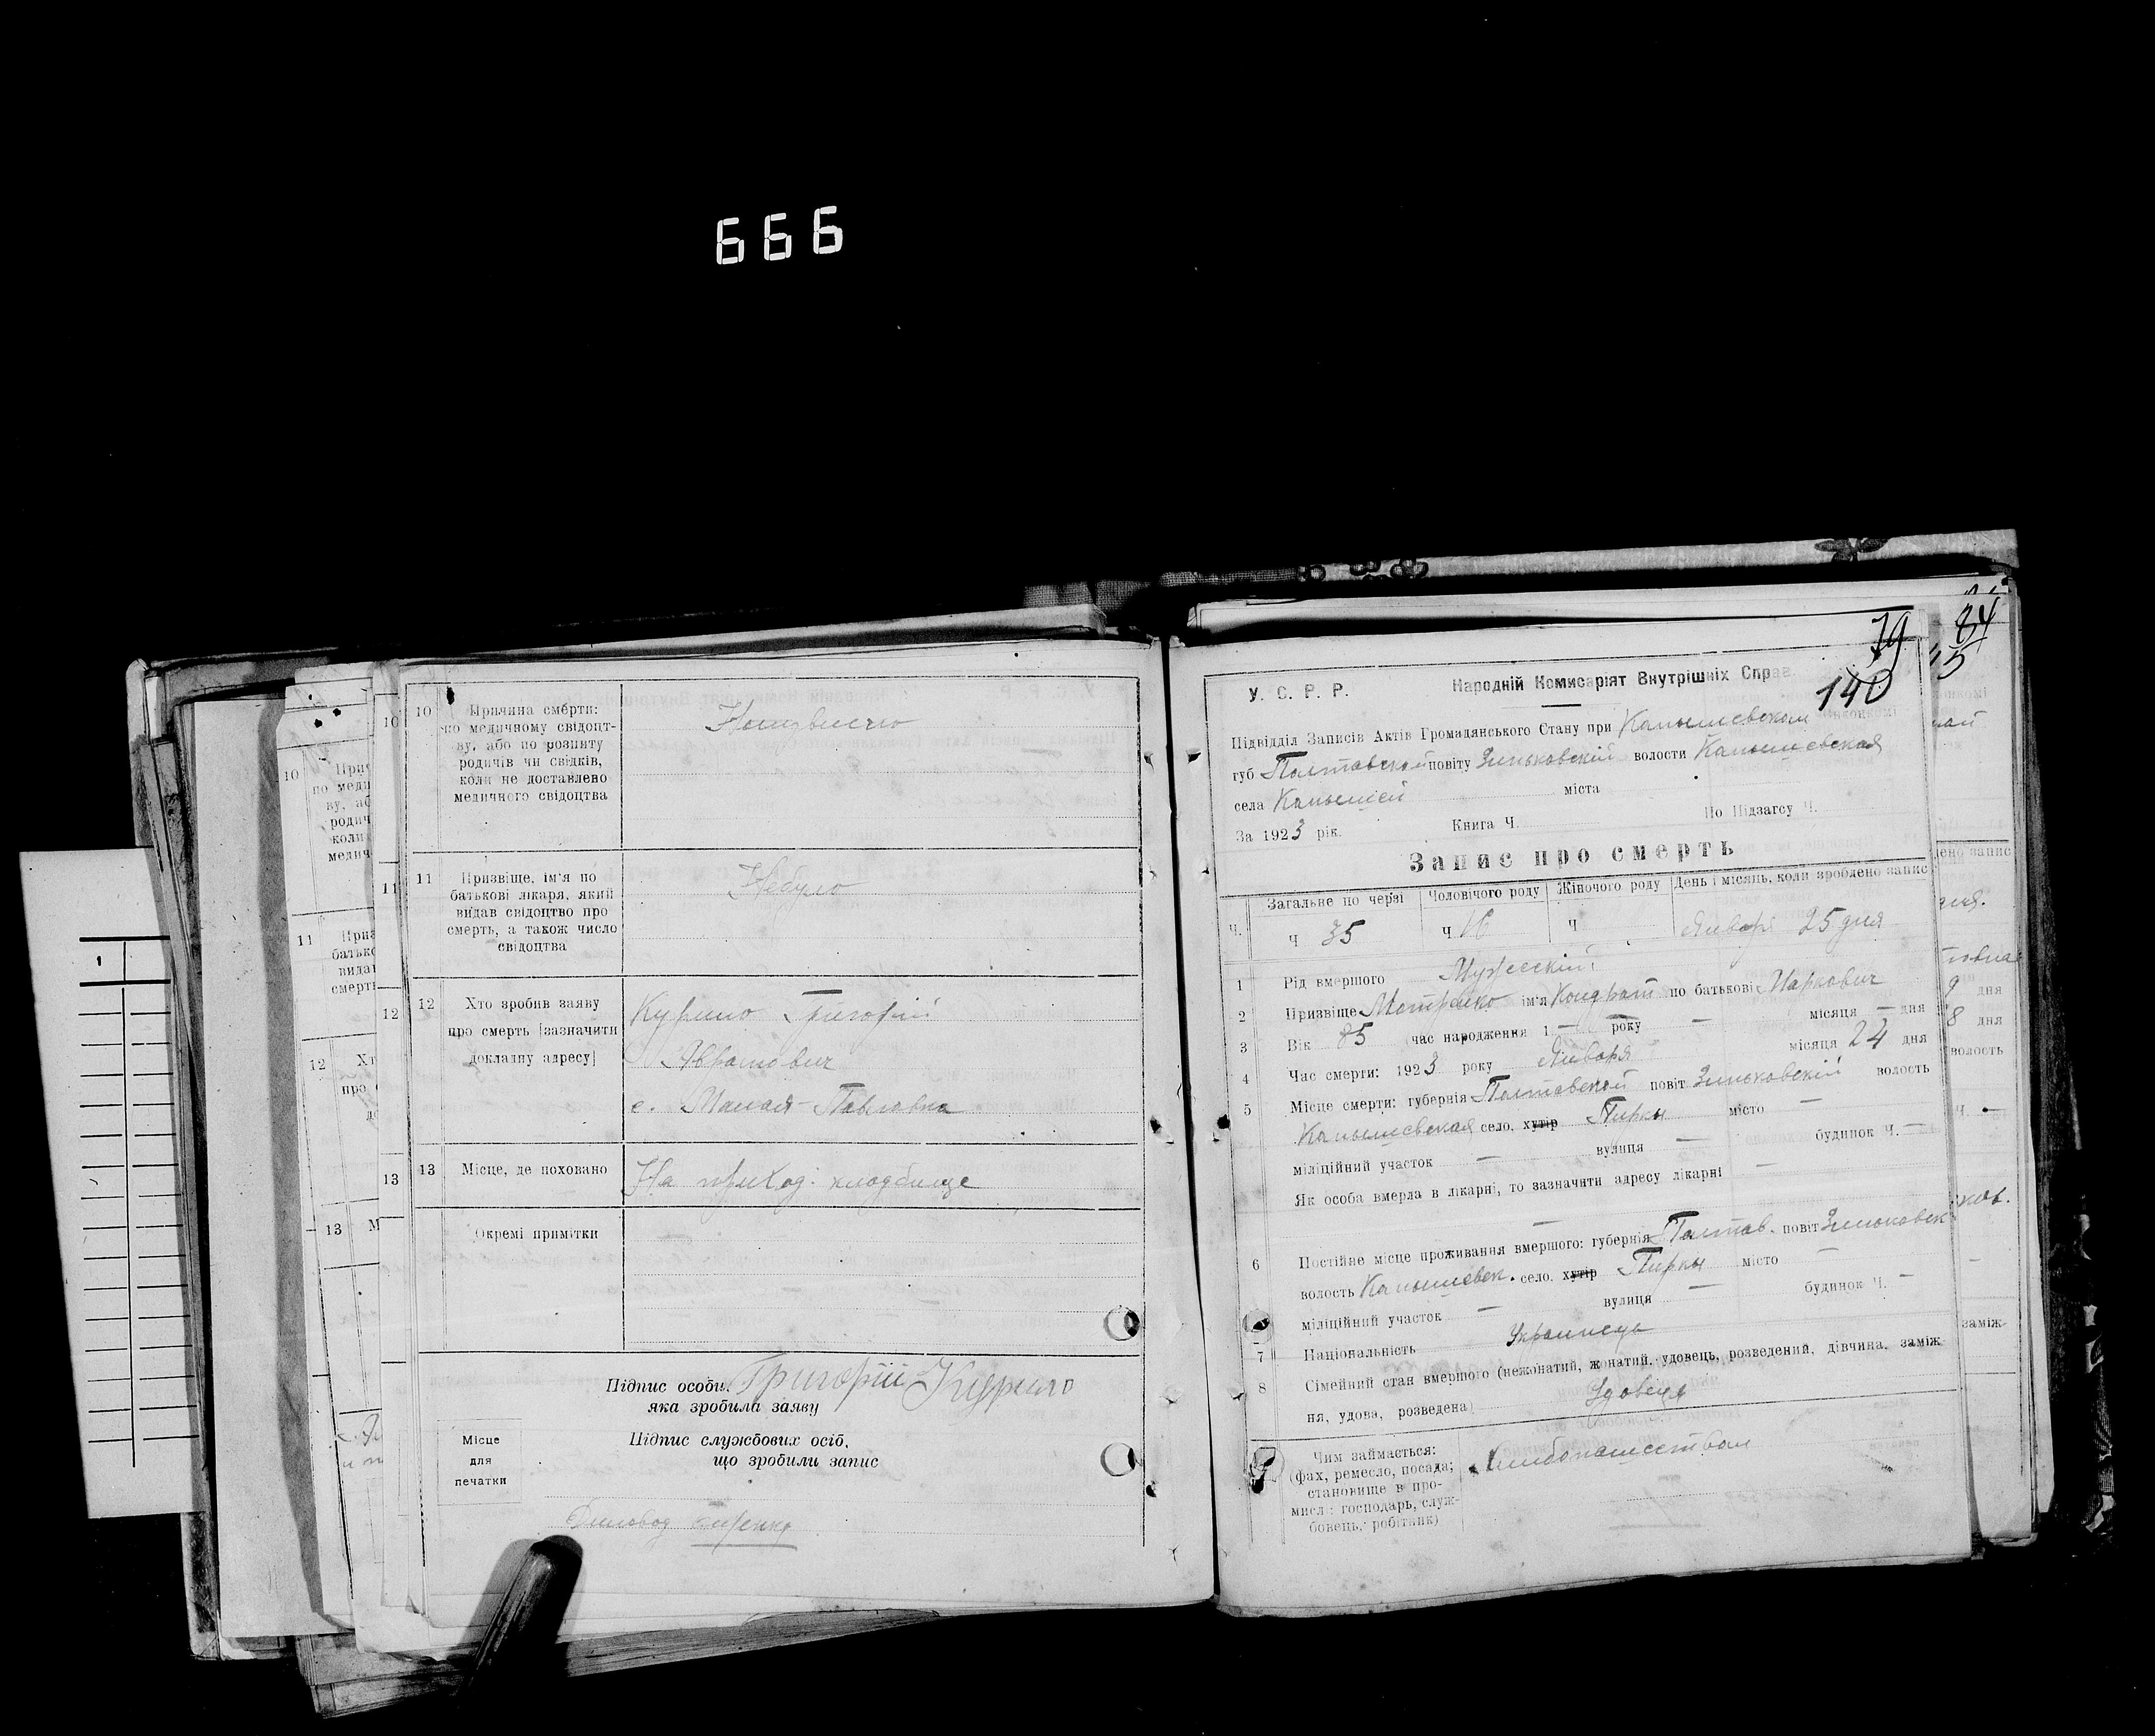 666
10 Причина смерти:
по медичному свідоцт-
ву, або по розпиту
родичів чи свідків,
коли не доставлено
медичного свідоцтва
11 Призвіще, ім'я по
батькові лікаря, який
видав свідоцтво про
смерть, а також число
свідоцтва
Небуло
12 Хто зробив заяву
про смерть [зазначити
докладну адресу]
Курило Григорій
Аврамович
с. Малая-Павловка
13 Місце, де поховано
На приход. кладбище
Окремі примітки
Підпис особи, Григорій Курило
яка зробила заяву
Підпис службових осіб,
що зробили запис
Місце
для
печатки
Диловод
79
140
84
У. С. Р. Р. Народній Комисаріят Внутрішніх Справ.
Підвідділ Записів Актів Громадянського Стану при Капышевском
губ Полтавской повіту Зиньковскій волости Капышевская
села Капышей міста
За 1923 рік. Книга Ч. По Підзагсу Ч.
Запис про смерть
Ч. Загальне по черзі Чоловічого роду Жіночого роду День і місяць, коли зроблено запис
Ч 35 Ч 16 Ч Январ 25 дня
1 Рід вмершого Мужескій
2 Призвіще Мотренко ім'я Кондрат по батькові Маркович
3 Вік 85 час народження 1 — року — місяця — дня
4 Час смерти: 1923 року Января місяця 24 дня
5 Місце смерти: губернія Полтавской повіт Зиньковскій волость
Капышевская село, хутір Пирки місто —
міліційний участок — вулиця — будинок Ч. —
Як особа вмерла в лікарні, то зазначити адресу лікарні —
6 Постійне місце проживання вмершого: губернія Полтав. повіт Зиньковск
волость Капышевск. село, хутір Пирки місто —
міліційний участок — вулиця — будинок Ч. —
7 Національність Украинець
8 Сімейний стан вмершого (нежонатий, жонатий, удовець, розведений, дівчина, заміж-
ня, удова, розведена) Удовець
9 Чим займається:
(фах, ремесло, посада;
становище в про-
мислі: господарь, служ-
бовець, робітник)
Хлибопашеством